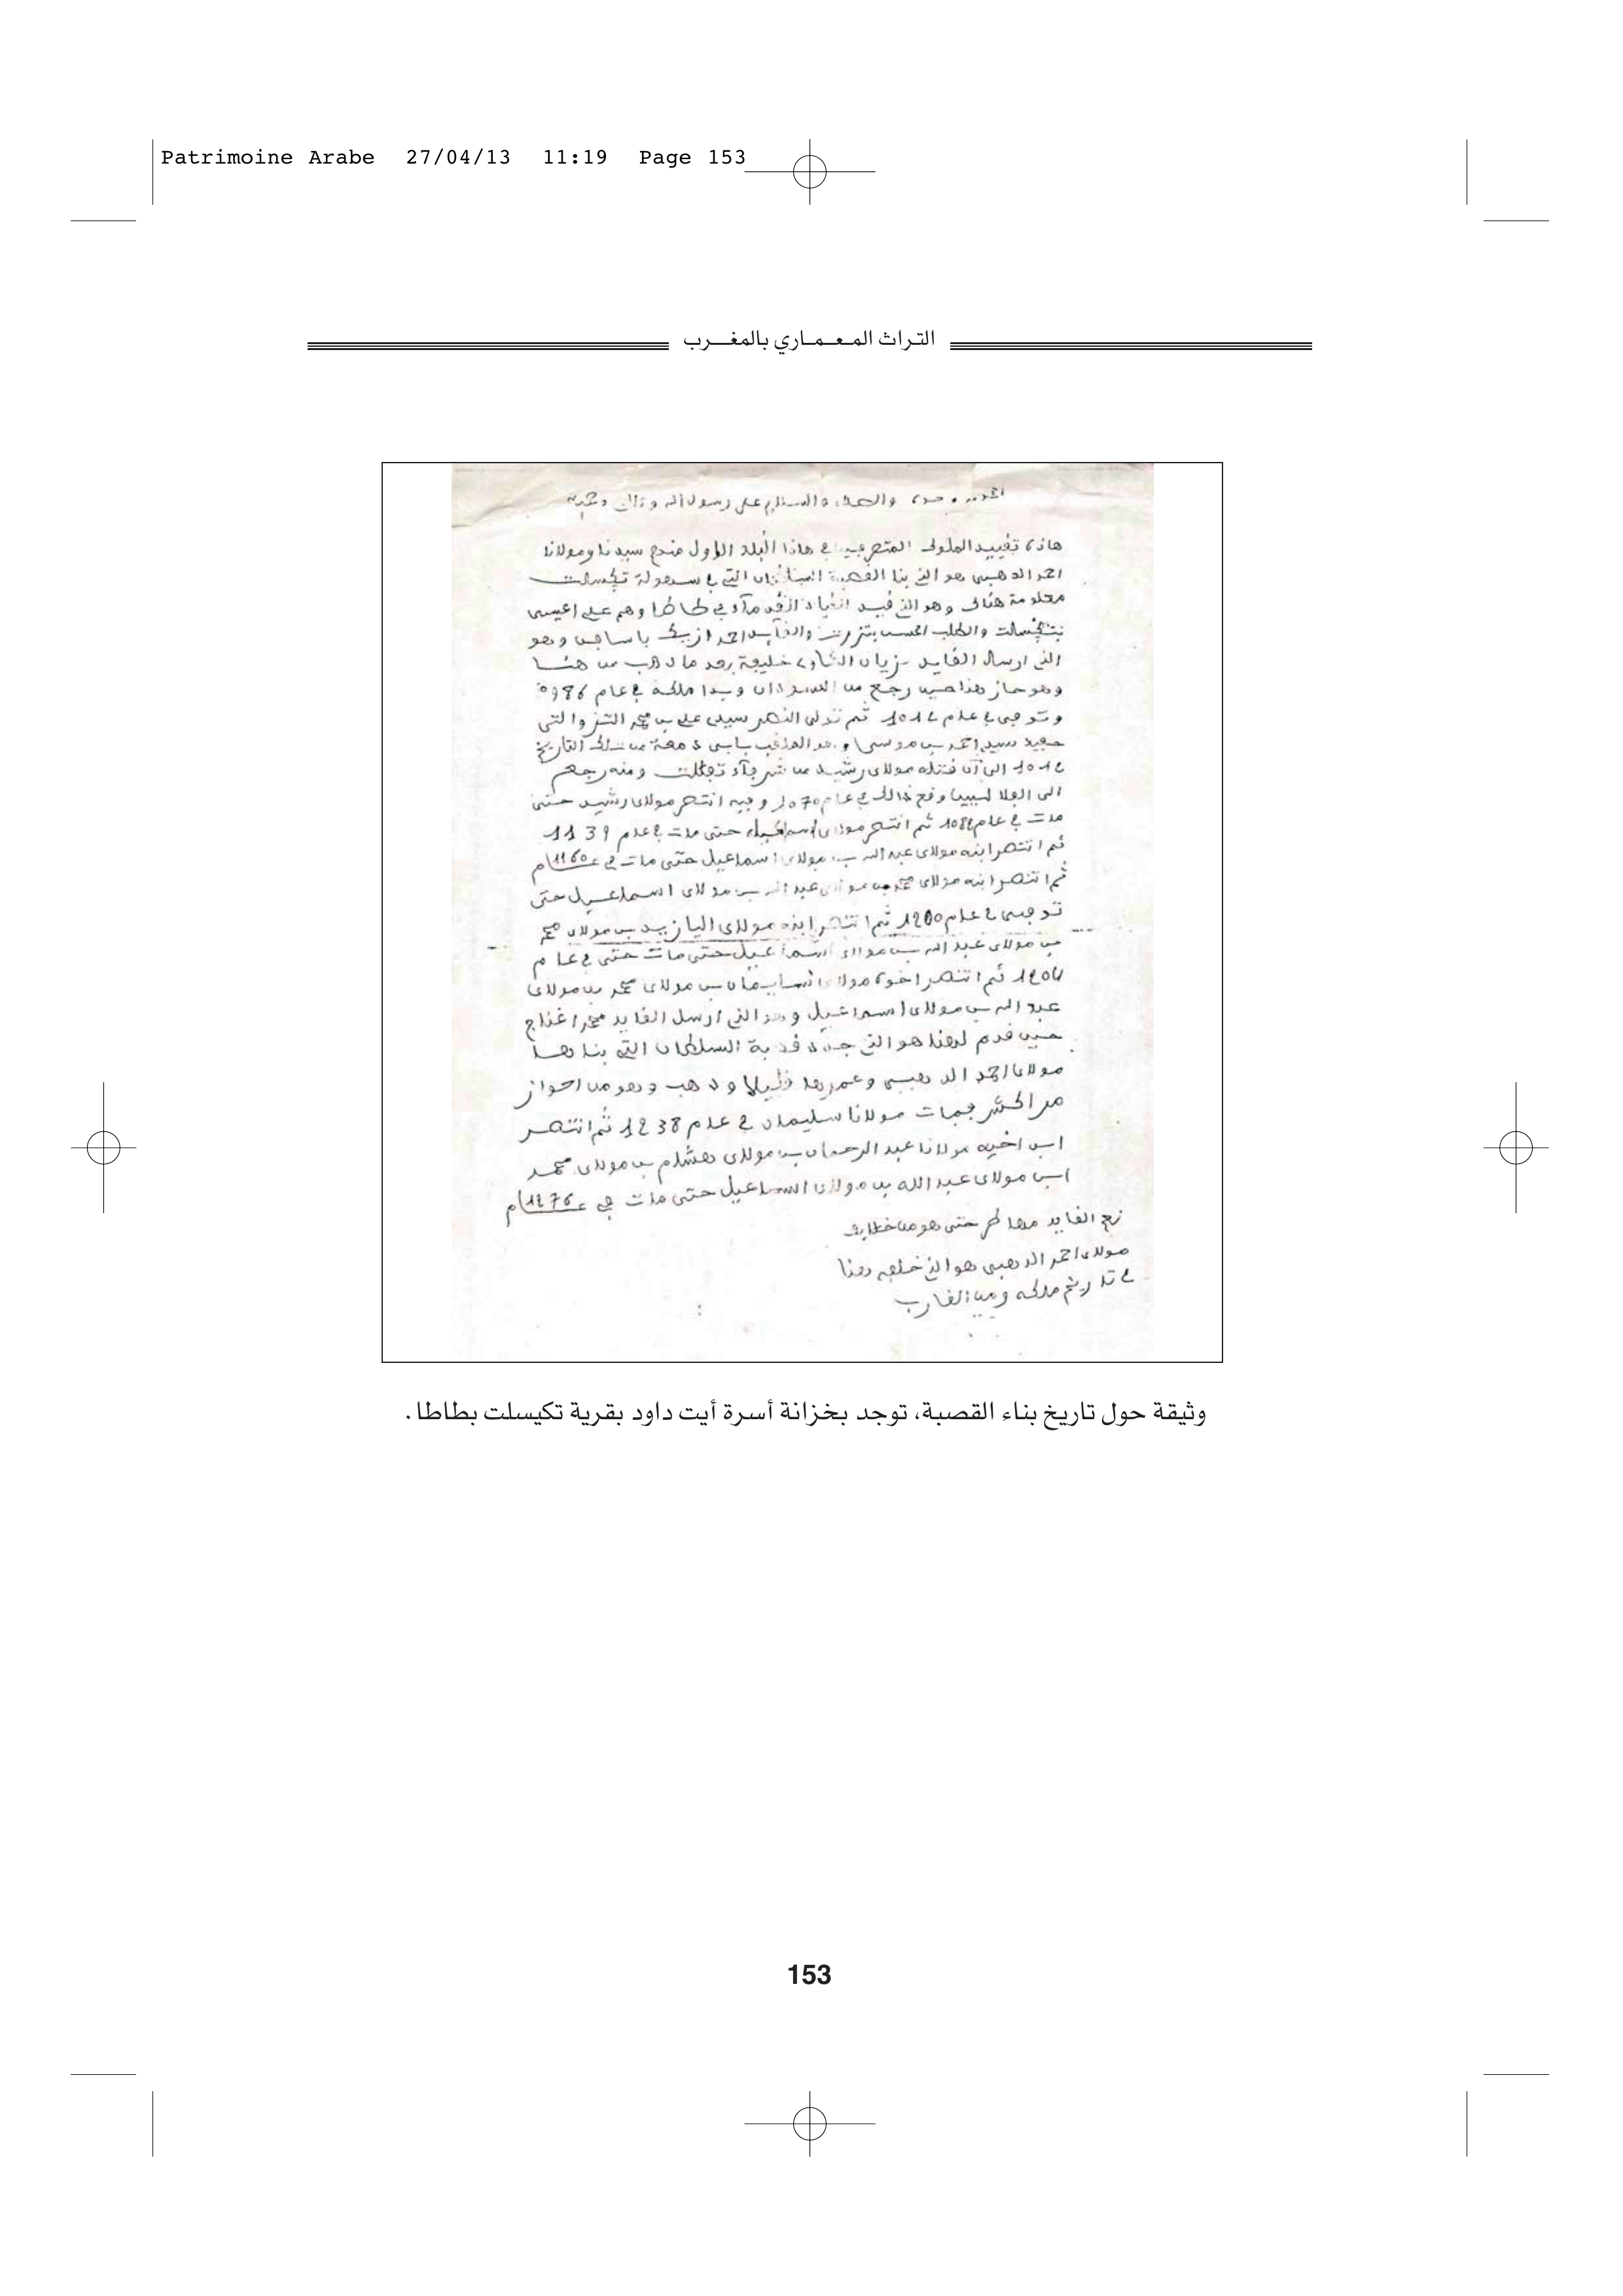 Patrimoine Arabe 27/04/13 11:19 Page 153
التراث المعماري بالمغرب
والصلاة والسلام على رسول الله وءاله وصحبه
هاذه تقييد الملوك المتصرفين في هاذا البلد الاول منهم سيدنا ومولانا
احمد الدهبي هو الذي بنا القصبة التي في سهولة تكسلت
معلومة هناك وهو الذي قيد وهم علي اعيسى
والطلب والقايد احمد وهو
الذي ارسال القايد زيان الشاوي خليفة بعد ما دهب من هنا
وهو حاز هذا حين رجع من السودان وبدا ملكه في عام 986
وتوفي في عام 1012 ثم تولى النصر سيدي علي بن محمد التزروالتي
حفيد سيد احمد بن موسى من تلك التاريخ
1012 الى أن قتله مولاي رشيد من ومنه رجع
وقع ذالك في عام 1070 وفيه انتصر مولاي رشيد حتى
مات في عام 1082 ثم انتصر مولاي اسماعيل حتى مات في عام 1139
ثم انتصر ابنه مولاي عبد الله بن مولاي اسماعيل حتى مات في عام 1160
ثم انتصر ابنه مولاي محمد بن مولاي عبد الله بن مولاي اسماعيل حتى
توفي في عام 1200 ثم انتصر ابنه مولاي اليازيد بن مولاي محمد
بن مولاي عبد الله بن مولاي اسماعيل حتى مات حتى في عام
1204 ثم انتصر اخوه مولاي سليمان بن مولاي محمد بن مولاي
عبد الله بن مولاي اسماعيل وهو الذي ارسل القايد محمد اغناج
حين قدم لهنا هو الذي جدد قصبة السلطان التي بناها
مولاي احمد الدهبي وعمرها قليلا ودهب وهو من احواز
مراكش فمات مولانا سليمان في عام 1238 ثم انتصر
ابن اخيه مولانا عبد الرحمان بن مولاي هشام بن مولاي محمد
ابن مولاي عبد الله بن مولاي اسماعيل حتى مات في عام 1276
القايد حتى هو من
مولاي احمد الدهبي هو الذي خلفه هنا
في تاريخ ملكه
وثيقة حول تاريخ بناء القصبة، توجد بخزانة أسرة أيت داود بقرية تكيسلت بطاطا.
153